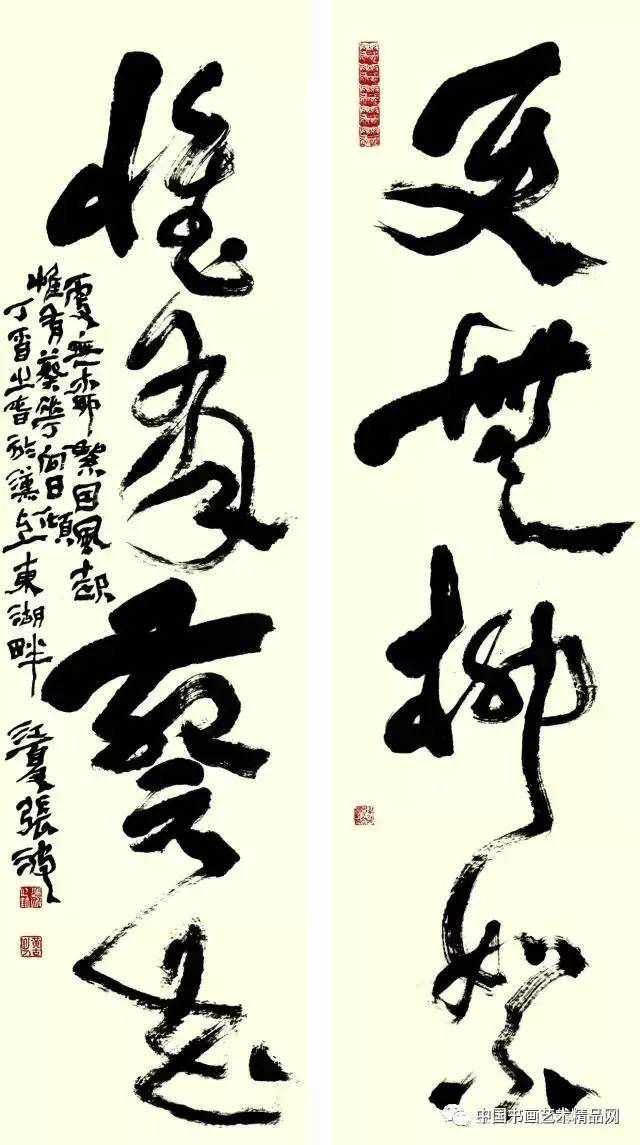 更無柳絮
惟有葵花
更無柳絮因風起
惟有葵花向日傾
丁酉之春於漢上東湖畔
江夏張
中国书画艺术精品网